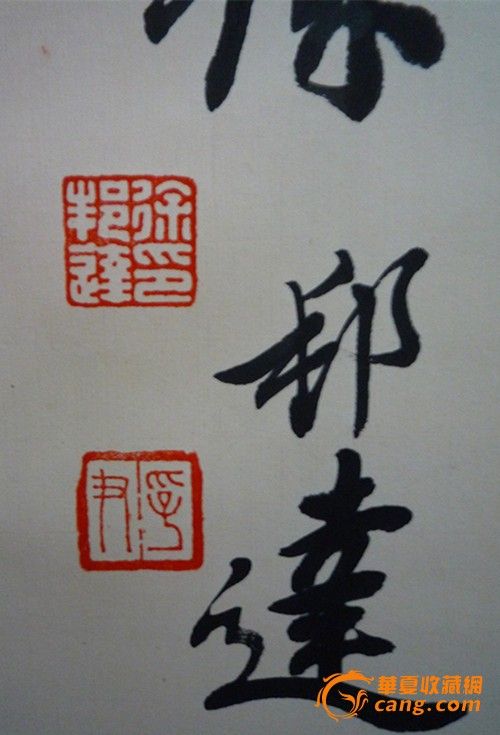 徐邦達
徐印邦達
孚尹
華夏收藏網
cang.com